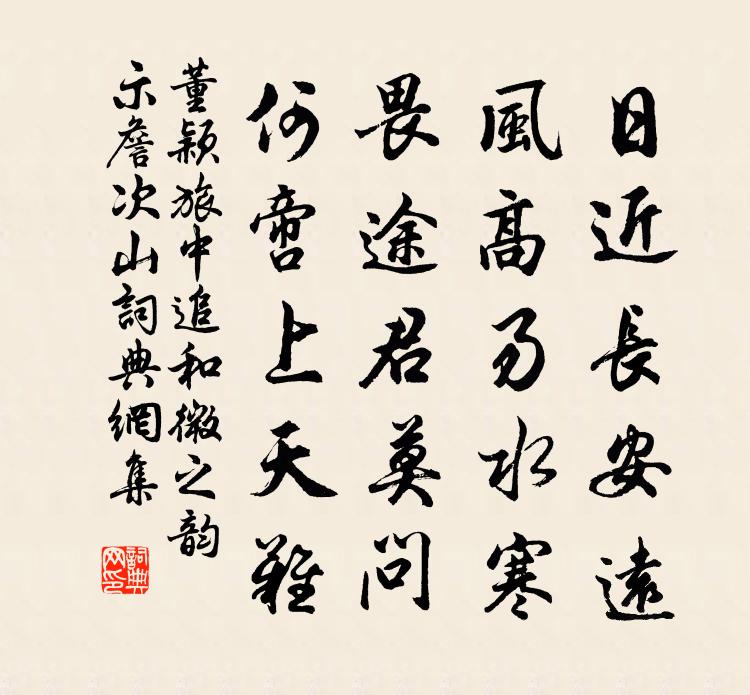 日近長安遠
風高易水寒
畏途君莫問
何啻上天難
董穎旅中追和微之韵
示詹次山詞典網集
詞典网印